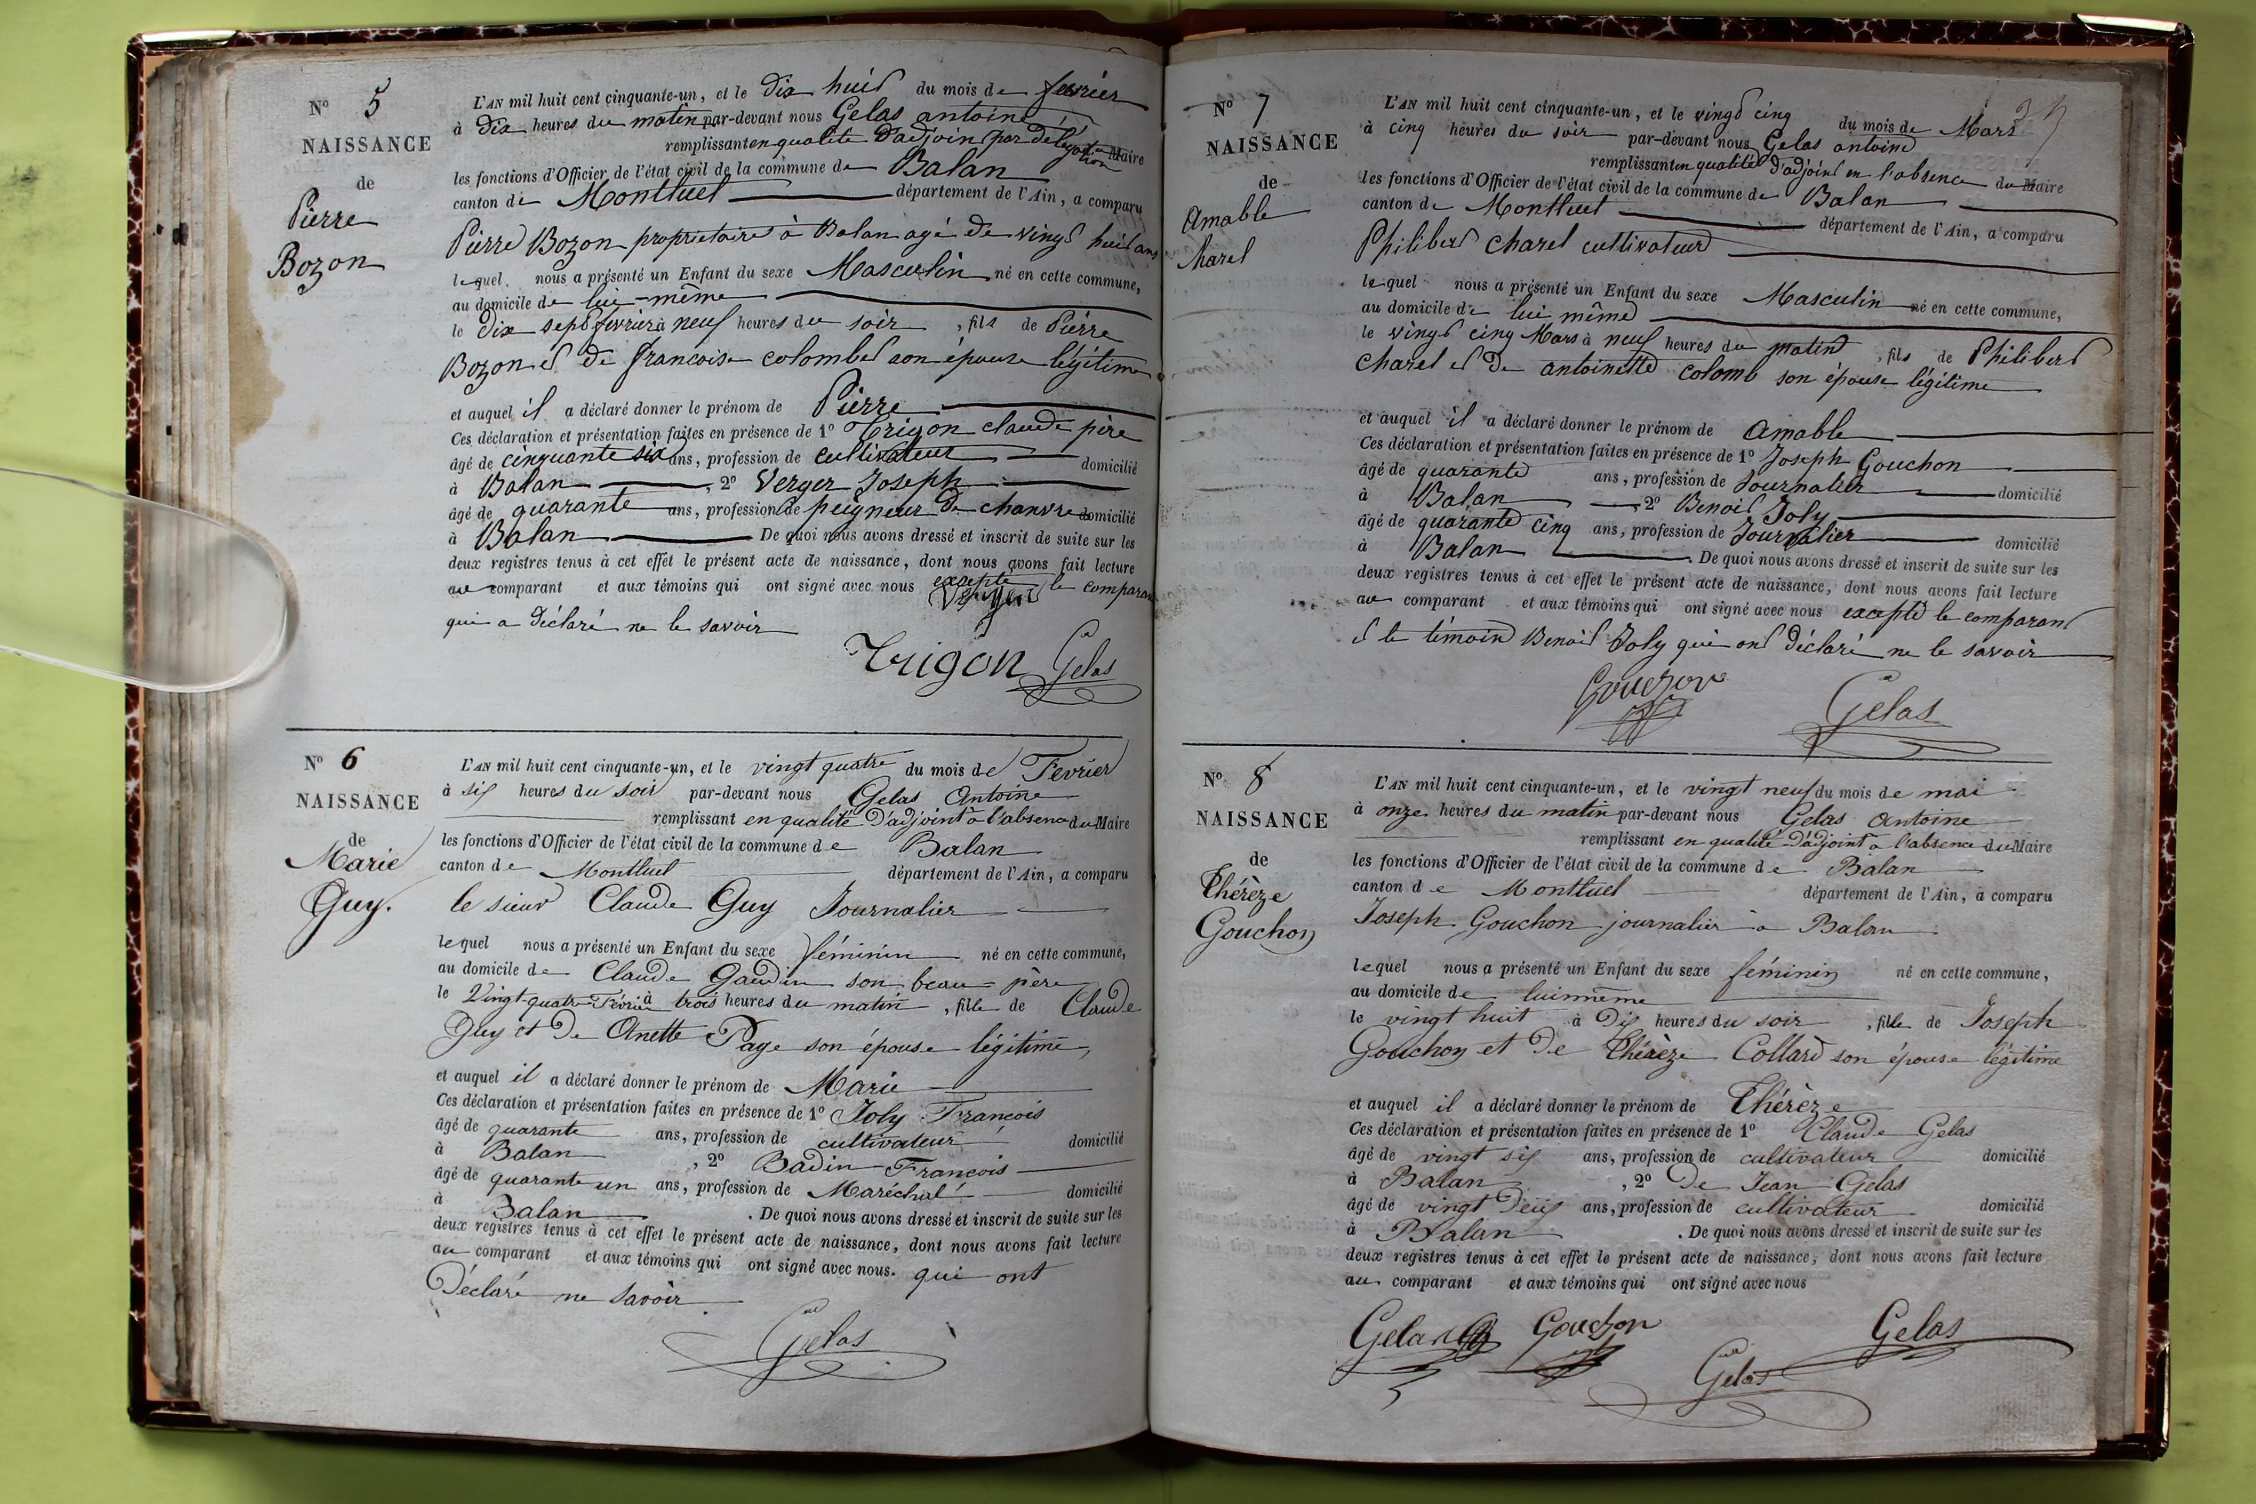 N° 5
NAISSANCE
de
Pierre
Bozon
L'AN mil huit cent cinquante-un, et le dix huit du mois de fevrier
à dix heures du matin par-devant nous Gelas antoine
remplissant en qualité d'adjoint par délégation du Maire
les fonctions d'Officier de l'état civil de la commune de Balan
canton de Montluel département de l'Ain, a comparu
Pierre Bozon propriétaire à Balan agé de vingt huit ans
lequel nous a présenté un Enfant du sexe Masculin né en cette commune,
au domicile de lui-même
le dix sept fevrier à neuf heures du soir, fils de Pierre
Bozon et de francoise colombet son épouse légitime
et auquel il a déclaré donner le prénom de Pierre
Ces déclaration et présentation faites en présence de 1° Trigon claude père
âgé de cinquante six ans, profession de cultivateur domicilié
à Balan, 2° Verger Joseph
âgé de quarante ans, profession de peigneur de chanvre domicilié
à Balan De quoi nous avons dressé et inscrit de suite sur les
deux registres tenus à cet effet le présent acte de naissance, dont nous avons fait lecture
au comparant et aux témoins qui ont signé avec nous excepté le comparant
qui a déclaré ne le savoir
Trigon Gelas
N° 6
NAISSANCE
de
Marie
Guy.
L'AN mil huit cent cinquante-un, et le vingt quatre du mois de Fevrier
à six heures du soir par-devant nous Gelas Antoine
remplissant en qualité d'adjoint à l'absence du Maire
les fonctions d'Officier de l'état civil de la commune de Balan
canton de Montluel département de l'Ain, a comparu
le sieur Claude Guy Journalier
lequel nous a présenté un Enfant du sexe féminin né en cette commune,
au domicile de Claude Gaudin son beau-père
le Vingt-quatre Févrié à trois heures du matin, fille de Claude
Guy et de Anette Page son épouse légitime,
et auquel il a déclaré donner le prénom de Marie
Ces déclaration et présentation faites en présence de 1° Joly François
âgé de quarante ans, profession de cultivateur domicilié
à Balan, 2° Badin François
âgé de quarante un ans, profession de Maréchal domicilié
à Balan. De quoi nous avons dressé et inscrit de suite sur les
deux registres tenus à cet effet le présent acte de naissance, dont nous avons fait lecture
au comparant et aux témoins qui ont signé avec nous. qui ont
Déclaré ne savoir
Gelas
N° 7
NAISSANCE
de
Amable
Charel
L'AN mil huit cent cinquante-un, et le vingt cinq du mois de Mars
à cinq heures du soir par-devant nous Gelas antoine
remplissant en qualité d'adjoint en l'absence du Maire
les fonctions d'Officier de l'état civil de la commune de Balan
canton de Montluel département de l'Ain, a comparu
Philibert Charel cultivateur
lequel nous a présenté un Enfant du sexe Masculin né en cette commune,
au domicile de lui même
le vingt cinq Mars à neuf heures du matin, fils de Philibert
charel et De antoinette colomb son épouse légitime
et auquel il a déclaré donner le prénom de amable
Ces déclaration et présentation faites en présence de 1° Joseph Gouchon
âgé de quarante ans, profession de Journalier domicilié
à Balan 2° Benoit Joly
âgé de quarante cinq ans, profession de Journalier
à Balan domicilié. De quoi nous avons dressé et inscrit de suite sur les
deux registres tenus à cet effet le présent acte de naissance, dont nous avons fait lecture
au comparant et aux témoins qui ont signé avec nous excepté le comparant
et le témoin Benoit Joly qui ont déclaré ne le savoir
Gouchon Gelas
N° 8
NAISSANCE
de
Thérèze
Gouchon
L'AN mil huit cent cinquante-un, et le vingt neuf du mois de mai
à onze heures du matin par-devant nous Gelas antoine
remplissant en qualité d'adjoint à l'absence du Maire
les fonctions d'Officier de l'état civil de la commune de Balan
canton de Montluel département de l'Ain, a comparu
Joseph Gouchon journalier à Balan
lequel nous a présenté un Enfant du sexe féminin né en cette commune,
au domicile de luimême
le vingt huit à dix heures du soir, fille de Joseph
Gouchon et de Thérèze Collard son épouse légitime
et auquel il a déclaré donner le prénom de Thérèze
Ces déclaration et présentation faites en présence de 1° Claude Gelas
âgé de vingt six ans, profession de cultivateur domicilié
à Balan, 2° De Jean Gelas
âgé de vingt deux ans, profession de cultivateur domicilié
à Balan. De quoi nous avons dressé et inscrit de suite sur les
deux registres tenus à cet effet le présent acte de naissance, dont nous avons fait lecture
au comparant et aux témoins qui ont signé avec nous
Gelas Gouchon Gelas
Gelas